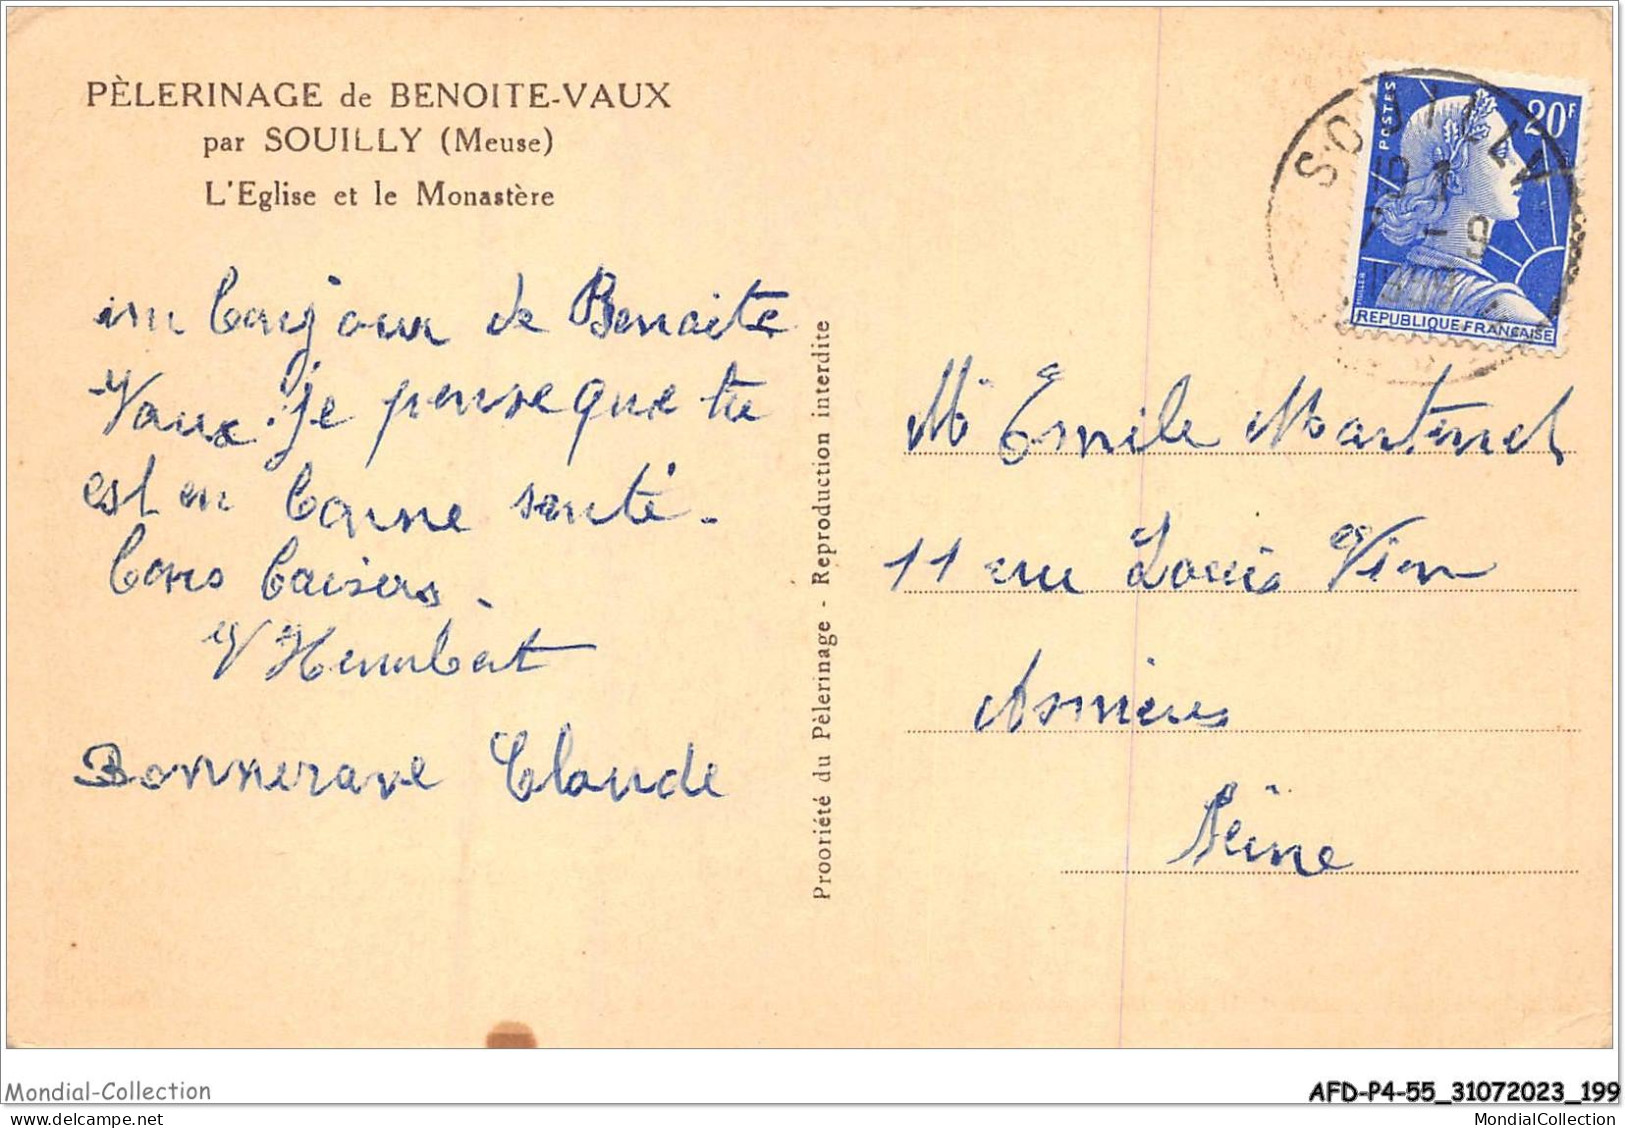 PÈLERINAGE de BENOITE-VAUX
par SOUILLY (Meuse)
L'Eglise et le Monastère
un bonjour de Benoite
Vaux. je pense que tu
est en bonne santé.
bons baisers.
V Humbert
Bonnerave Claude
Prooriété du Pèlerinage - Reproduction interdite
SOUILLY
19
7 - 9
POSTES
20F
REPUBLIQUE FRANÇAISE
Mr Emile Martinet
11 rue Louis Vion
Asnières
Seine
Mondial-Collection
AFD-P4-55_31072023_199
MondialCollection